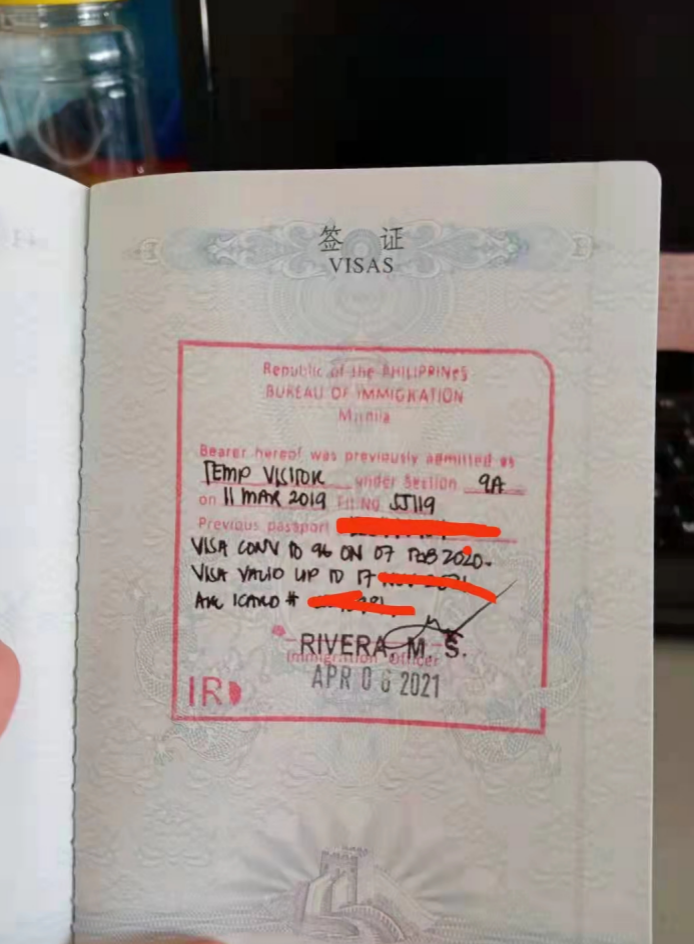 签 证
VISAS
Republic of the PHILIPPINES
BUREAU OF IMMIGRATION
Manila
Bearer hereof was previously admitted as
TEMP VISITOR under Section 9A
on 11 MAR 2019 FLT NO. 5J119
Previous passport
VISA CONV TO 9G ON 07 FEB 2020.
VISA VALID UP TO 17
ACR ICARD #
RIVERA, M. S.
Immigration Officer
APR 06 2021
IRD